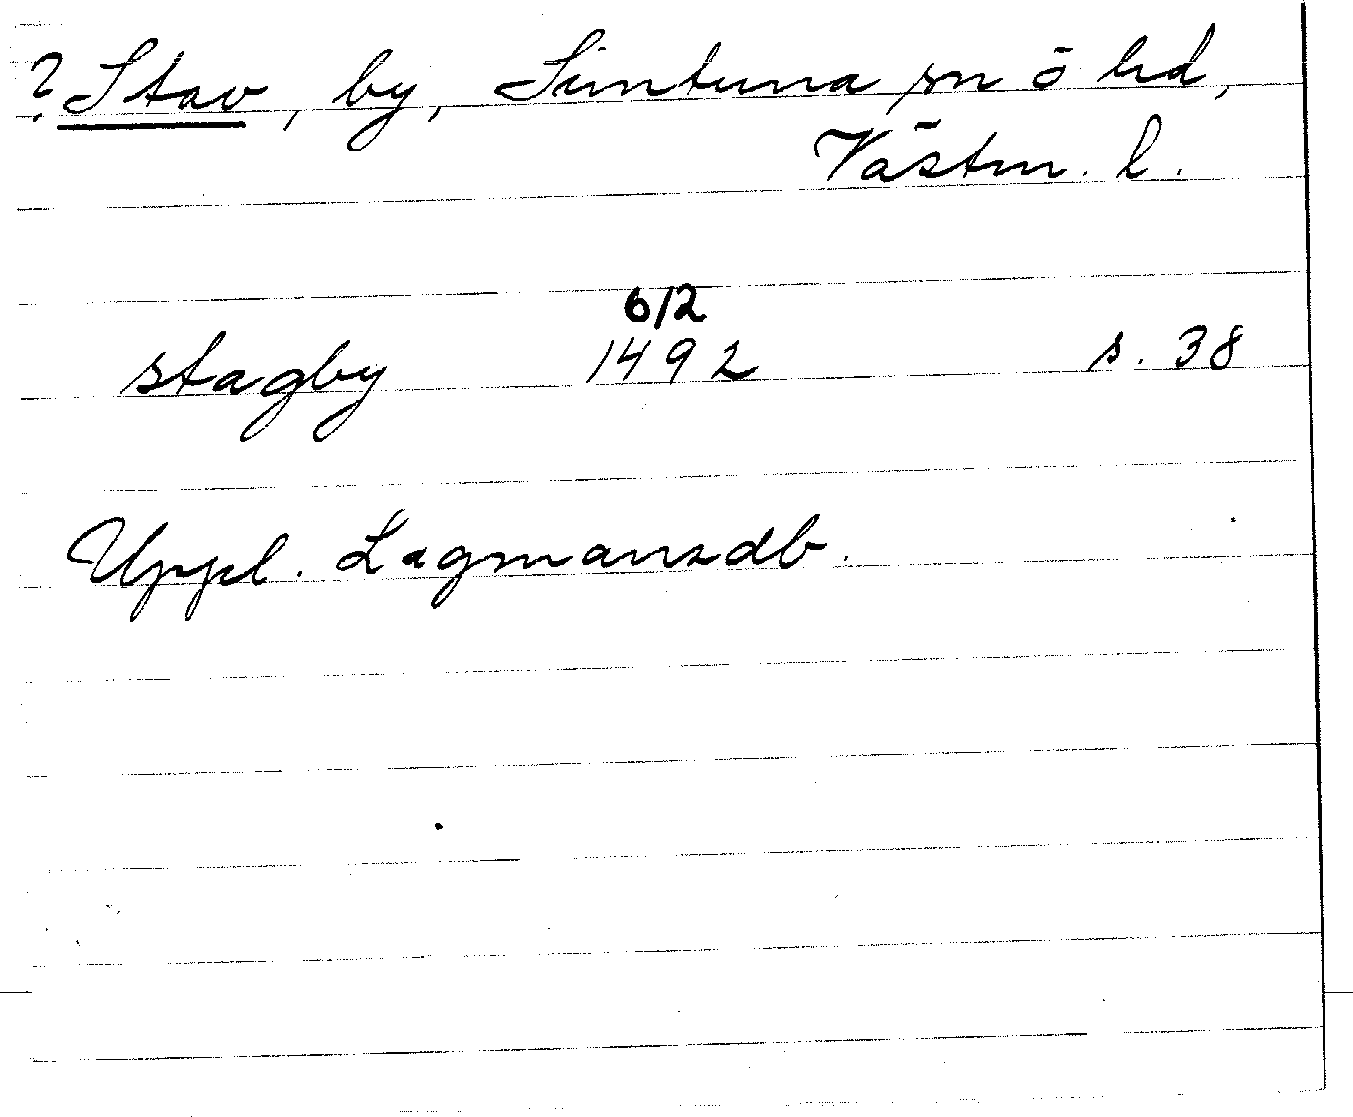 ? Stav, by, Simtuna sn o hd,
Västm. l.
6/2
stagby 1492 s. 38
Uppl. Lagmansdb.